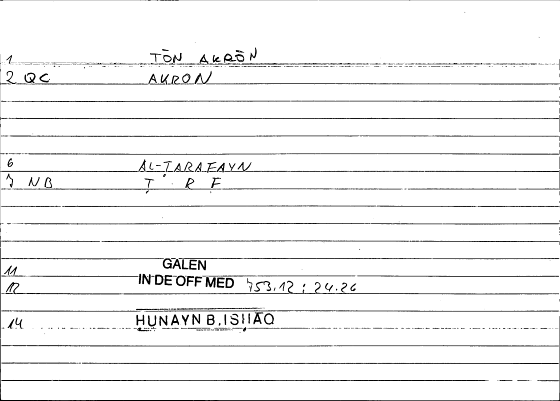 1 TŌN AKRŌN
2 QC AKRON
6 AL-ṬARAFAYN
7 NB Ṭ R F
11 GALEN
12 IN DE OFF MED 753.12 : 24.26
14 ḤUNAYN B. ISḤĀQ